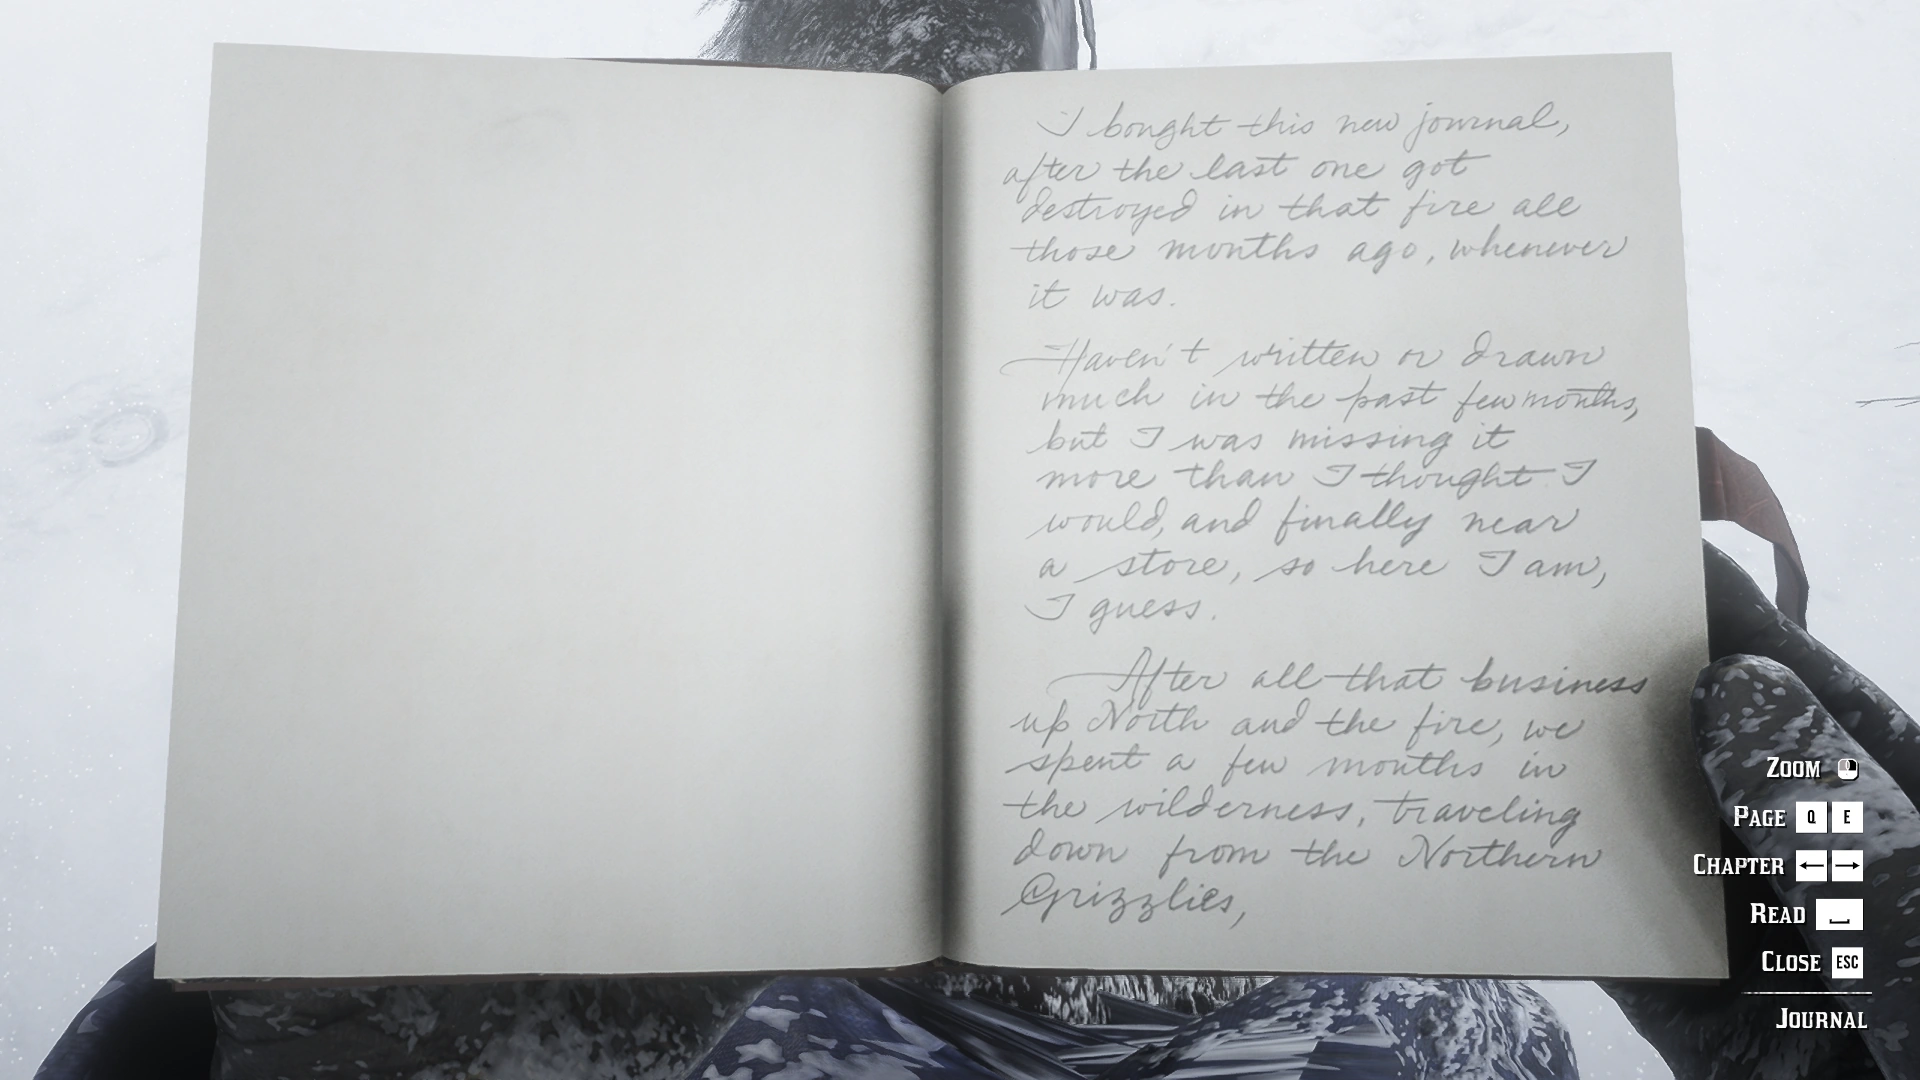 I bought this new journal,
after the last one got
destroyed in that fire all
those months ago, whenever
it was.
Haven't written or drawn
much in the past few months,
but I was missing it
more than I thought I
would, and finally near
a store, so here I am,
I guess.
After all that business
up North and the fire, we
spent a few months in
the wilderness, traveling
down from the Northern
Grizzlies,
ZOOM
PAGE Q E
CHAPTER ← →
READ
CLOSE ESC
JOURNAL